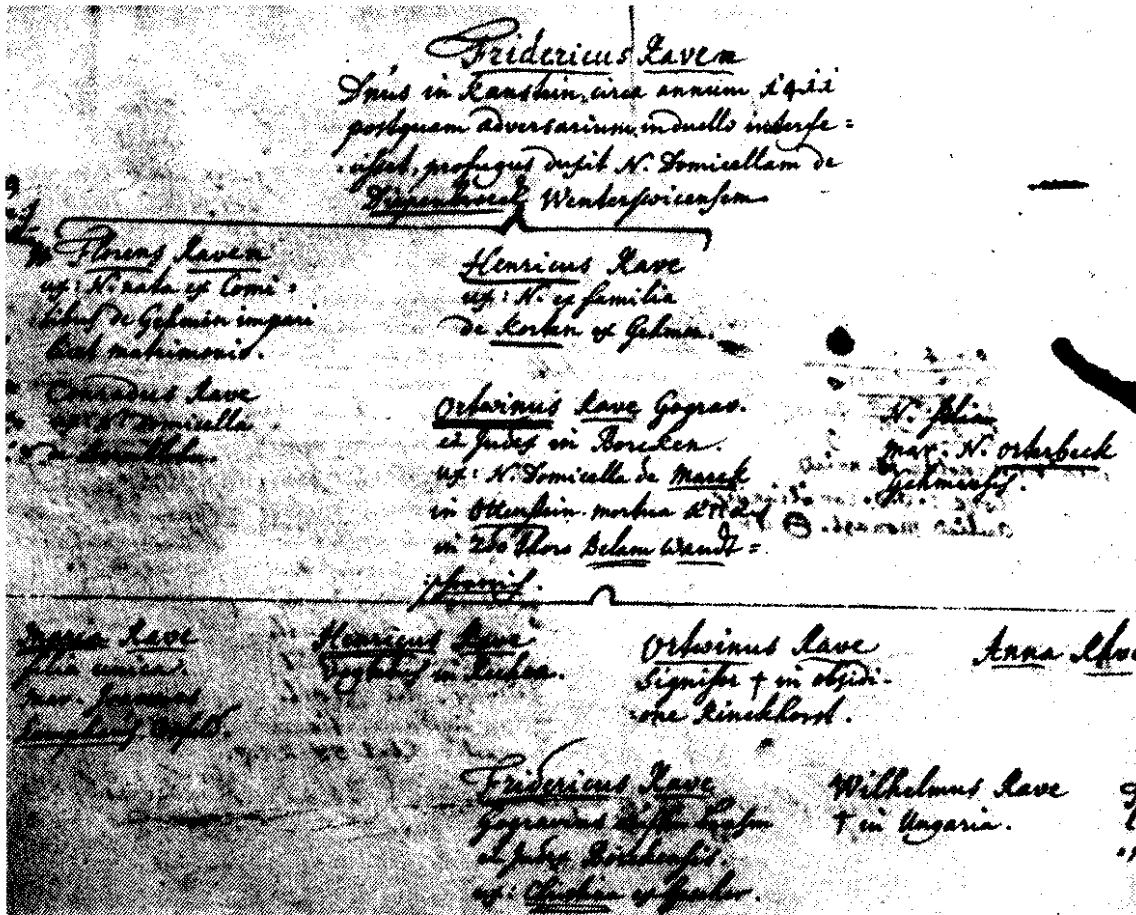 Fridericus Raven
Dnus in Ranstein, circa annum 1411
postquam adversarium, in duello interfe=
cisset, profugus duxit N. Domicellam de
Diepenbroeck Wenterswicensem
Florens Raven
ux: N. nata ex Comi=
tibus de Gehmen impari
licet matrimonio.
Henricus Rave
ux: N. ex familia
de Korten ex Gehmen.
Conradus Rave
ux: N. Domicella
de
Ortwinus Rave Gograv.
et Judex in Borcken.
ux: N. Domicella de Marck
in Ottenstein mortua
in 2do Thoro Belam Wandt=
N. filia
mar: N. Osterbeck
Gehmensis.
Maria Rave
filia unica
mar. Joannes
Henricus Rave
in
Ortwinus Rave
Signifer † in obsidi-
one Rinckhorst.
Anna Rave
Fridericus Rave
Gogravius
et Judex Borckensis.
ux: ex
Wilhelmus Rave
† in Ungaria.